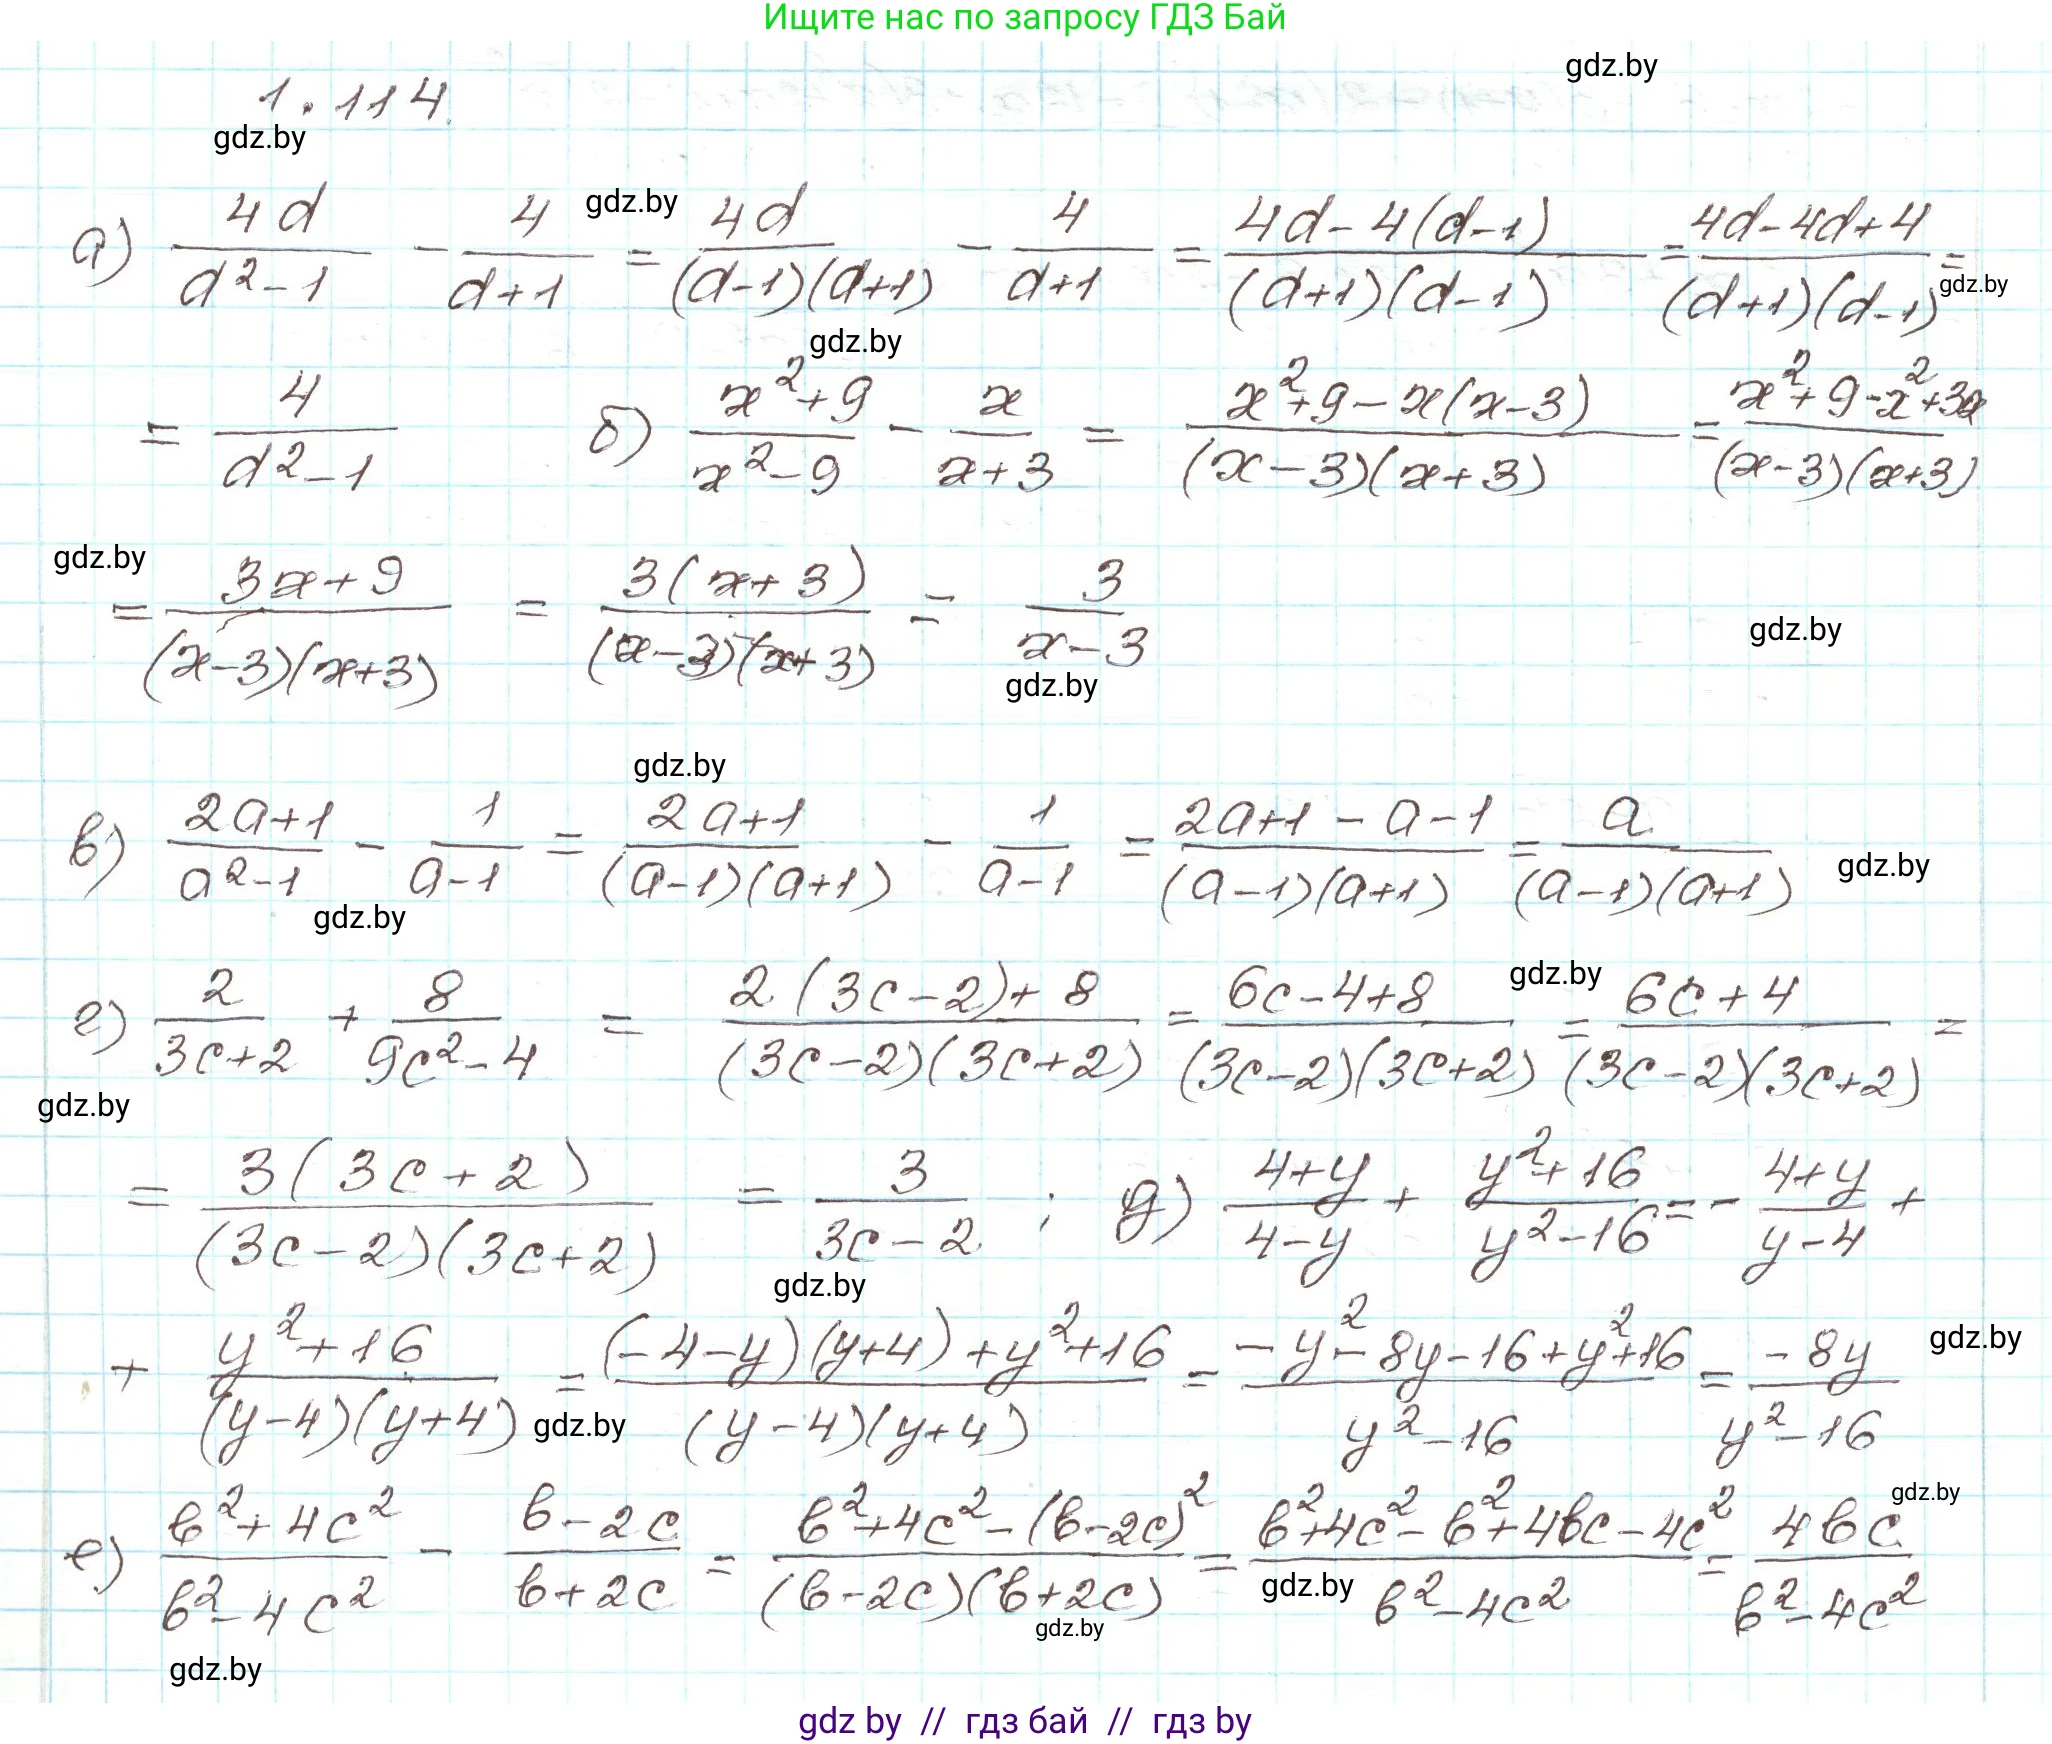 Ищите нас по запросу ГДЗ Бай
gdz.by
1.114.
gdz.by
а) 4d/(d²-1) - 4/(d+1) = 4d/((d-1)(d+1)) - 4/(d+1) = (4d-4(d-1))/((d+1)(d-1)) = (4d-4d+4)/((d+1)(d-1)) =
gdz.by
gdz.by
gdz.by
= 4/(d²-1) б) (x²+9)/(x²-9) - x/(x+3) = (x²+9-x(x-3))/((x-3)(x+3)) = (x²+9-x²+3x)/((x-3)(x+3))
gdz.by
= (3x+9)/((x-3)(x+3)) = (3(x+3))/((x-3)(x+3)) = 3/(x-3)
gdz.by
gdz.by
gdz.by
в) (2a+1)/(a²-1) - 1/(a-1) = (2a+1)/((a-1)(a+1)) - 1/(a-1) = (2a+1-a-1)/((a-1)(a+1)) = a/((a-1)(a+1))
gdz.by
gdz.by
г) 2/(3c+2) + 8/(9c²-4) = (2(3c-2)+8)/((3c-2)(3c+2)) = (6c-4+8)/((3c-2)(3c+2)) = (6c+4)/((3c-2)(3c+2)) =
gdz.by
gdz.by
= (3(3c+2))/((3c-2)(3c+2)) = 3/(3c-2) ; д) (4+y)/(4-y) + (y²+16)/(y²-16) = - (4+y)/(y-4) +
gdz.by
+ (y²+16)/((y-4)(y+4)) = ((-4-y)(y+4)+y²+16)/((y-4)(y+4)) = (-y²-8y-16+y²+16)/(y²-16) = (-8y)/(y²-16)
gdz.by
gdz.by
е) (b²+4c²)/(b²-4c²) - (b-2c)/(b+2c) = (b²+4c²-(b-2c)²)/((b-2c)(b+2c)) = (b²+4c²-b²+4bc-4c²)/(b²-4c²) = 4bc/(b²-4c²)
gdz.by
gdz.by
gdz.by
gdz.by
gdz by // гдз бай // гдз by